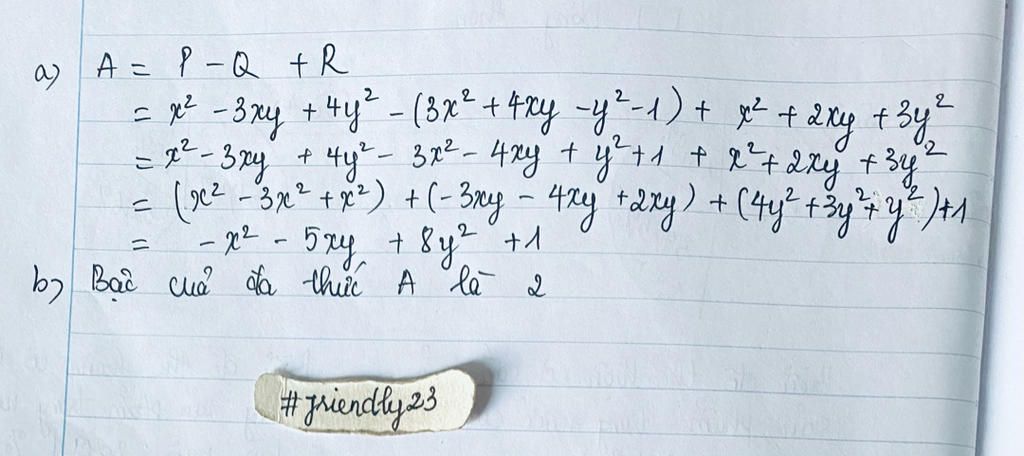 a) A = P - Q + R
= x² - 3xy + 4y² - (3x² + 4xy - y² - 1) + x² + 2xy + 3y²
= x² - 3xy + 4y² - 3x² - 4xy + y² + 1 + x² + 2xy + 3y²
= (x² - 3x² + x²) + (-3xy - 4xy + 2xy) + (4y² + 3y² + y²) + 1
= -x² - 5xy + 8y² + 1
b) Bậc của đa thức A là 2
#friendly23